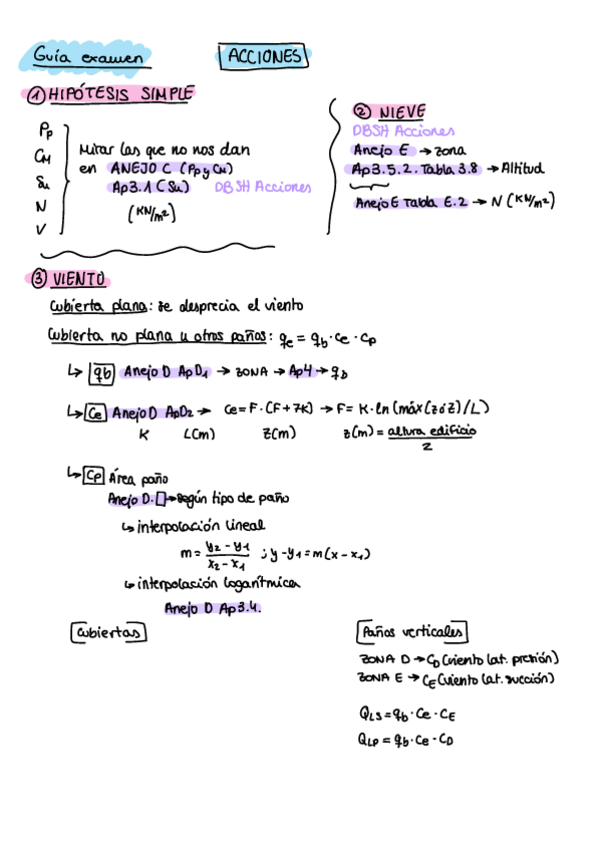 Guía examen
ACCIONES
① HIPÓTESIS SIMPLE
Pp
CM
Su
N
V
Mirar las que no nos dan
en ANEJO C (Pp y CM)
Ap3.1 (Su) DBSH Acciones
(KN/m²)
② NIEVE
DBSH Acciones
Anejo E → zona
Ap3.5.2. Tabla 3.8 → Altitud
Anejo E Tabla E.2 → N (KN/m²)
③ VIENTO
Cubierta plana: se desprecia el viento
Cubierta no plana u otros paños: qe = qb · Ce · Cp
↳ qb Anejo D ApD1 → ZONA → Ap4 → qb
↳ Ce Anejo D ApD2 → Ce = F · (F + 7K) → F = K · ln (máx (z ó Z) / L)
K L(m) Z(m) z(m) = altura edificio / 2
↳ Cp Área paño
Anejo D. □ → según tipo de paño
↳ interpolación lineal
m = y2 - y1 / x2 - x1 ; y - y1 = m (x - x1)
↳ interpolación logarítmica
Anejo D Ap3.4.
Cubiertas
Paños verticales
ZONA D → CD (viento lat. presión)
ZONA E → CE (viento lat. succión)
QLS = qb · Ce · CE
QLP = qb · Ce · CD